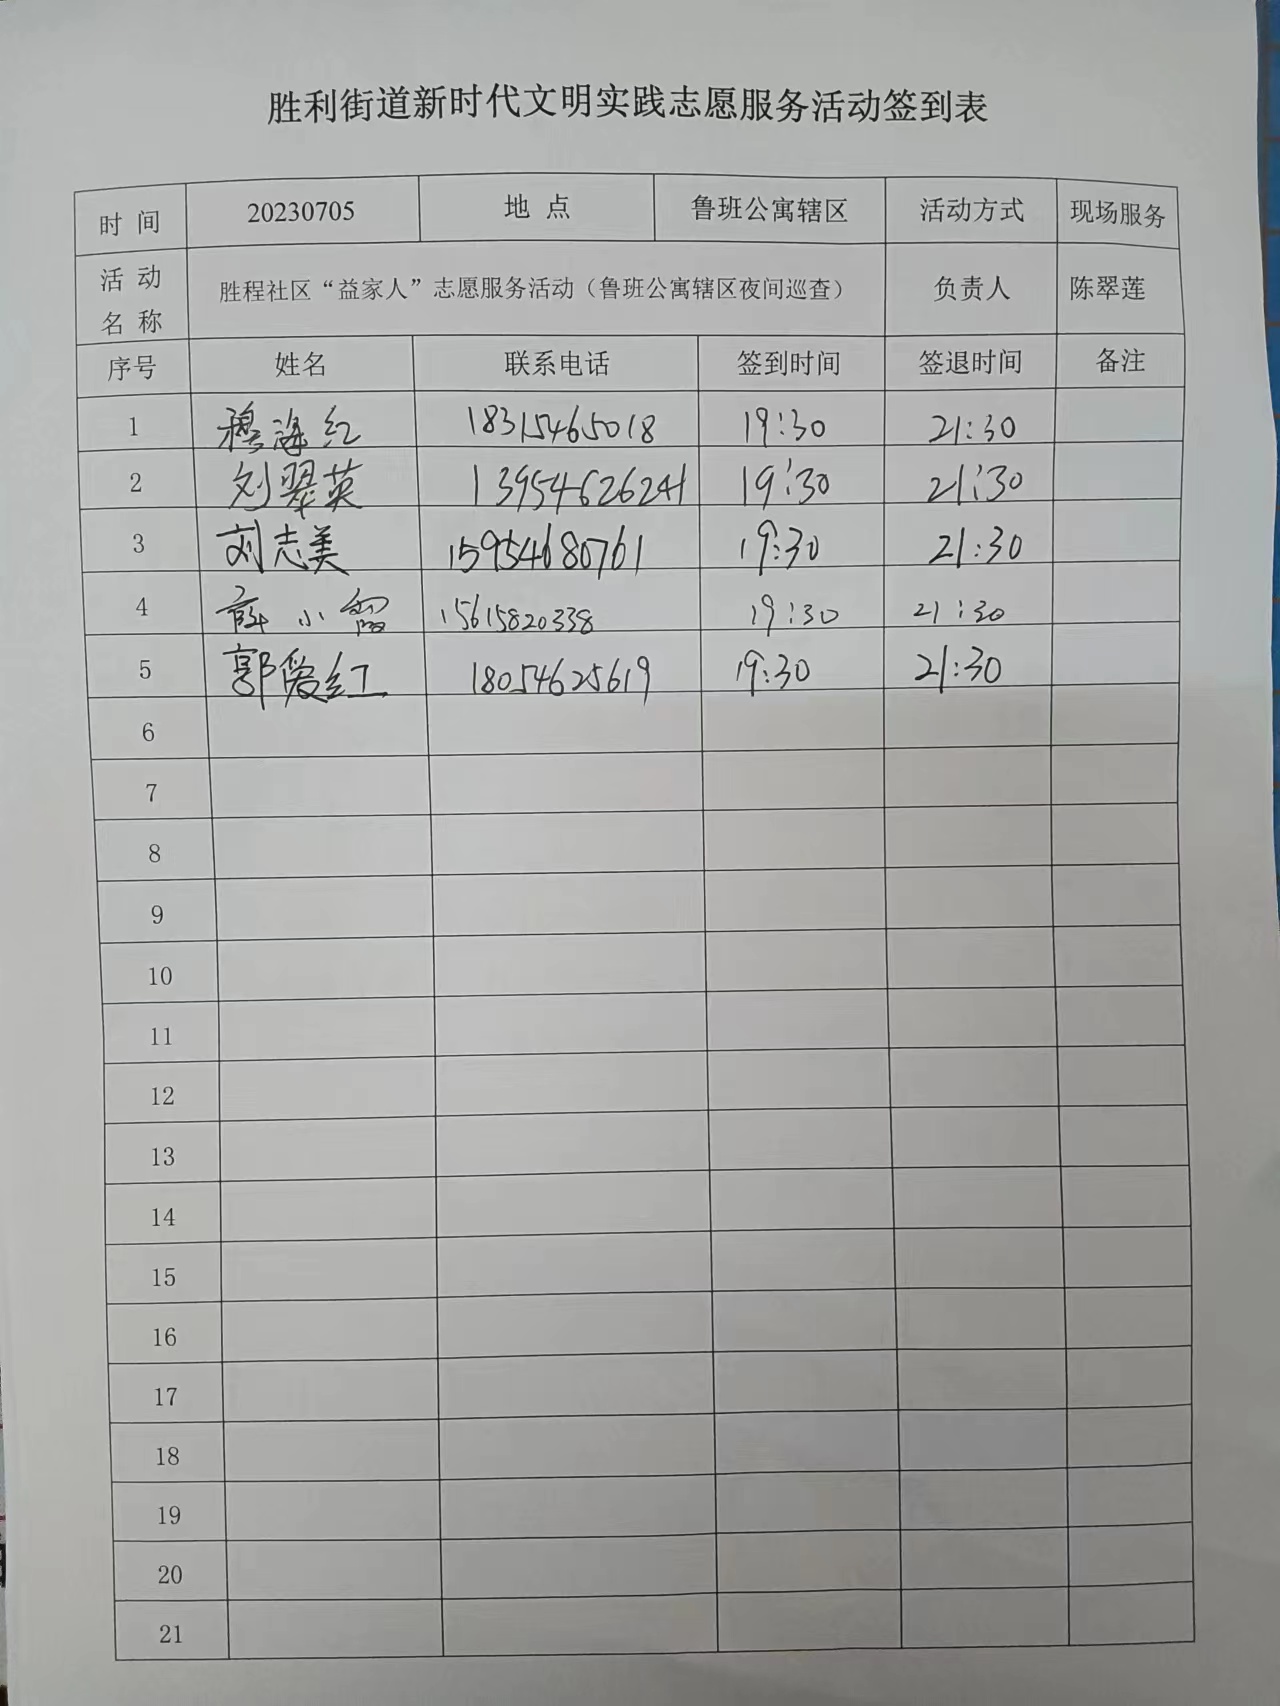 胜利街道新时代文明实践志愿服务活动签到表
时 间 20230705 地 点 鲁班公寓辖区 活动方式 现场服务
活 动 名 称 胜程社区“益家人”志愿服务活动（鲁班公寓辖区夜间巡查） 负责人 陈翠莲
序号 姓名 联系电话 签到时间 签退时间 备注
1 穆海红 18315465018 19:30 21:30
2 刘翠英 13954626241 19:30 21:30
3 刘志美 15954680761 19:30 21:30
4 薛小霞 15615820338 19:30 21:30
5 郭爱红 18054625619 19:30 21:30
6
7
8
9
10
11
12
13
14
15
16
17
18
19
20
21